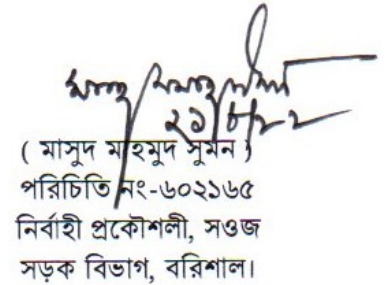 ২১/৮/২২
( মাসুদ মাহমুদ সুমন )
পরিচিতি নং-৬০২১৬৫
নির্বাহী প্রকৌশলী, সওজ
সড়ক বিভাগ, বরিশাল।